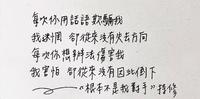 每次你用話語欺騙我
我迷惘 卻從來沒有失去方向
每次你想辦法傷害我
我害怕 卻從來沒有因此倒下
〝根本不是我對手〞